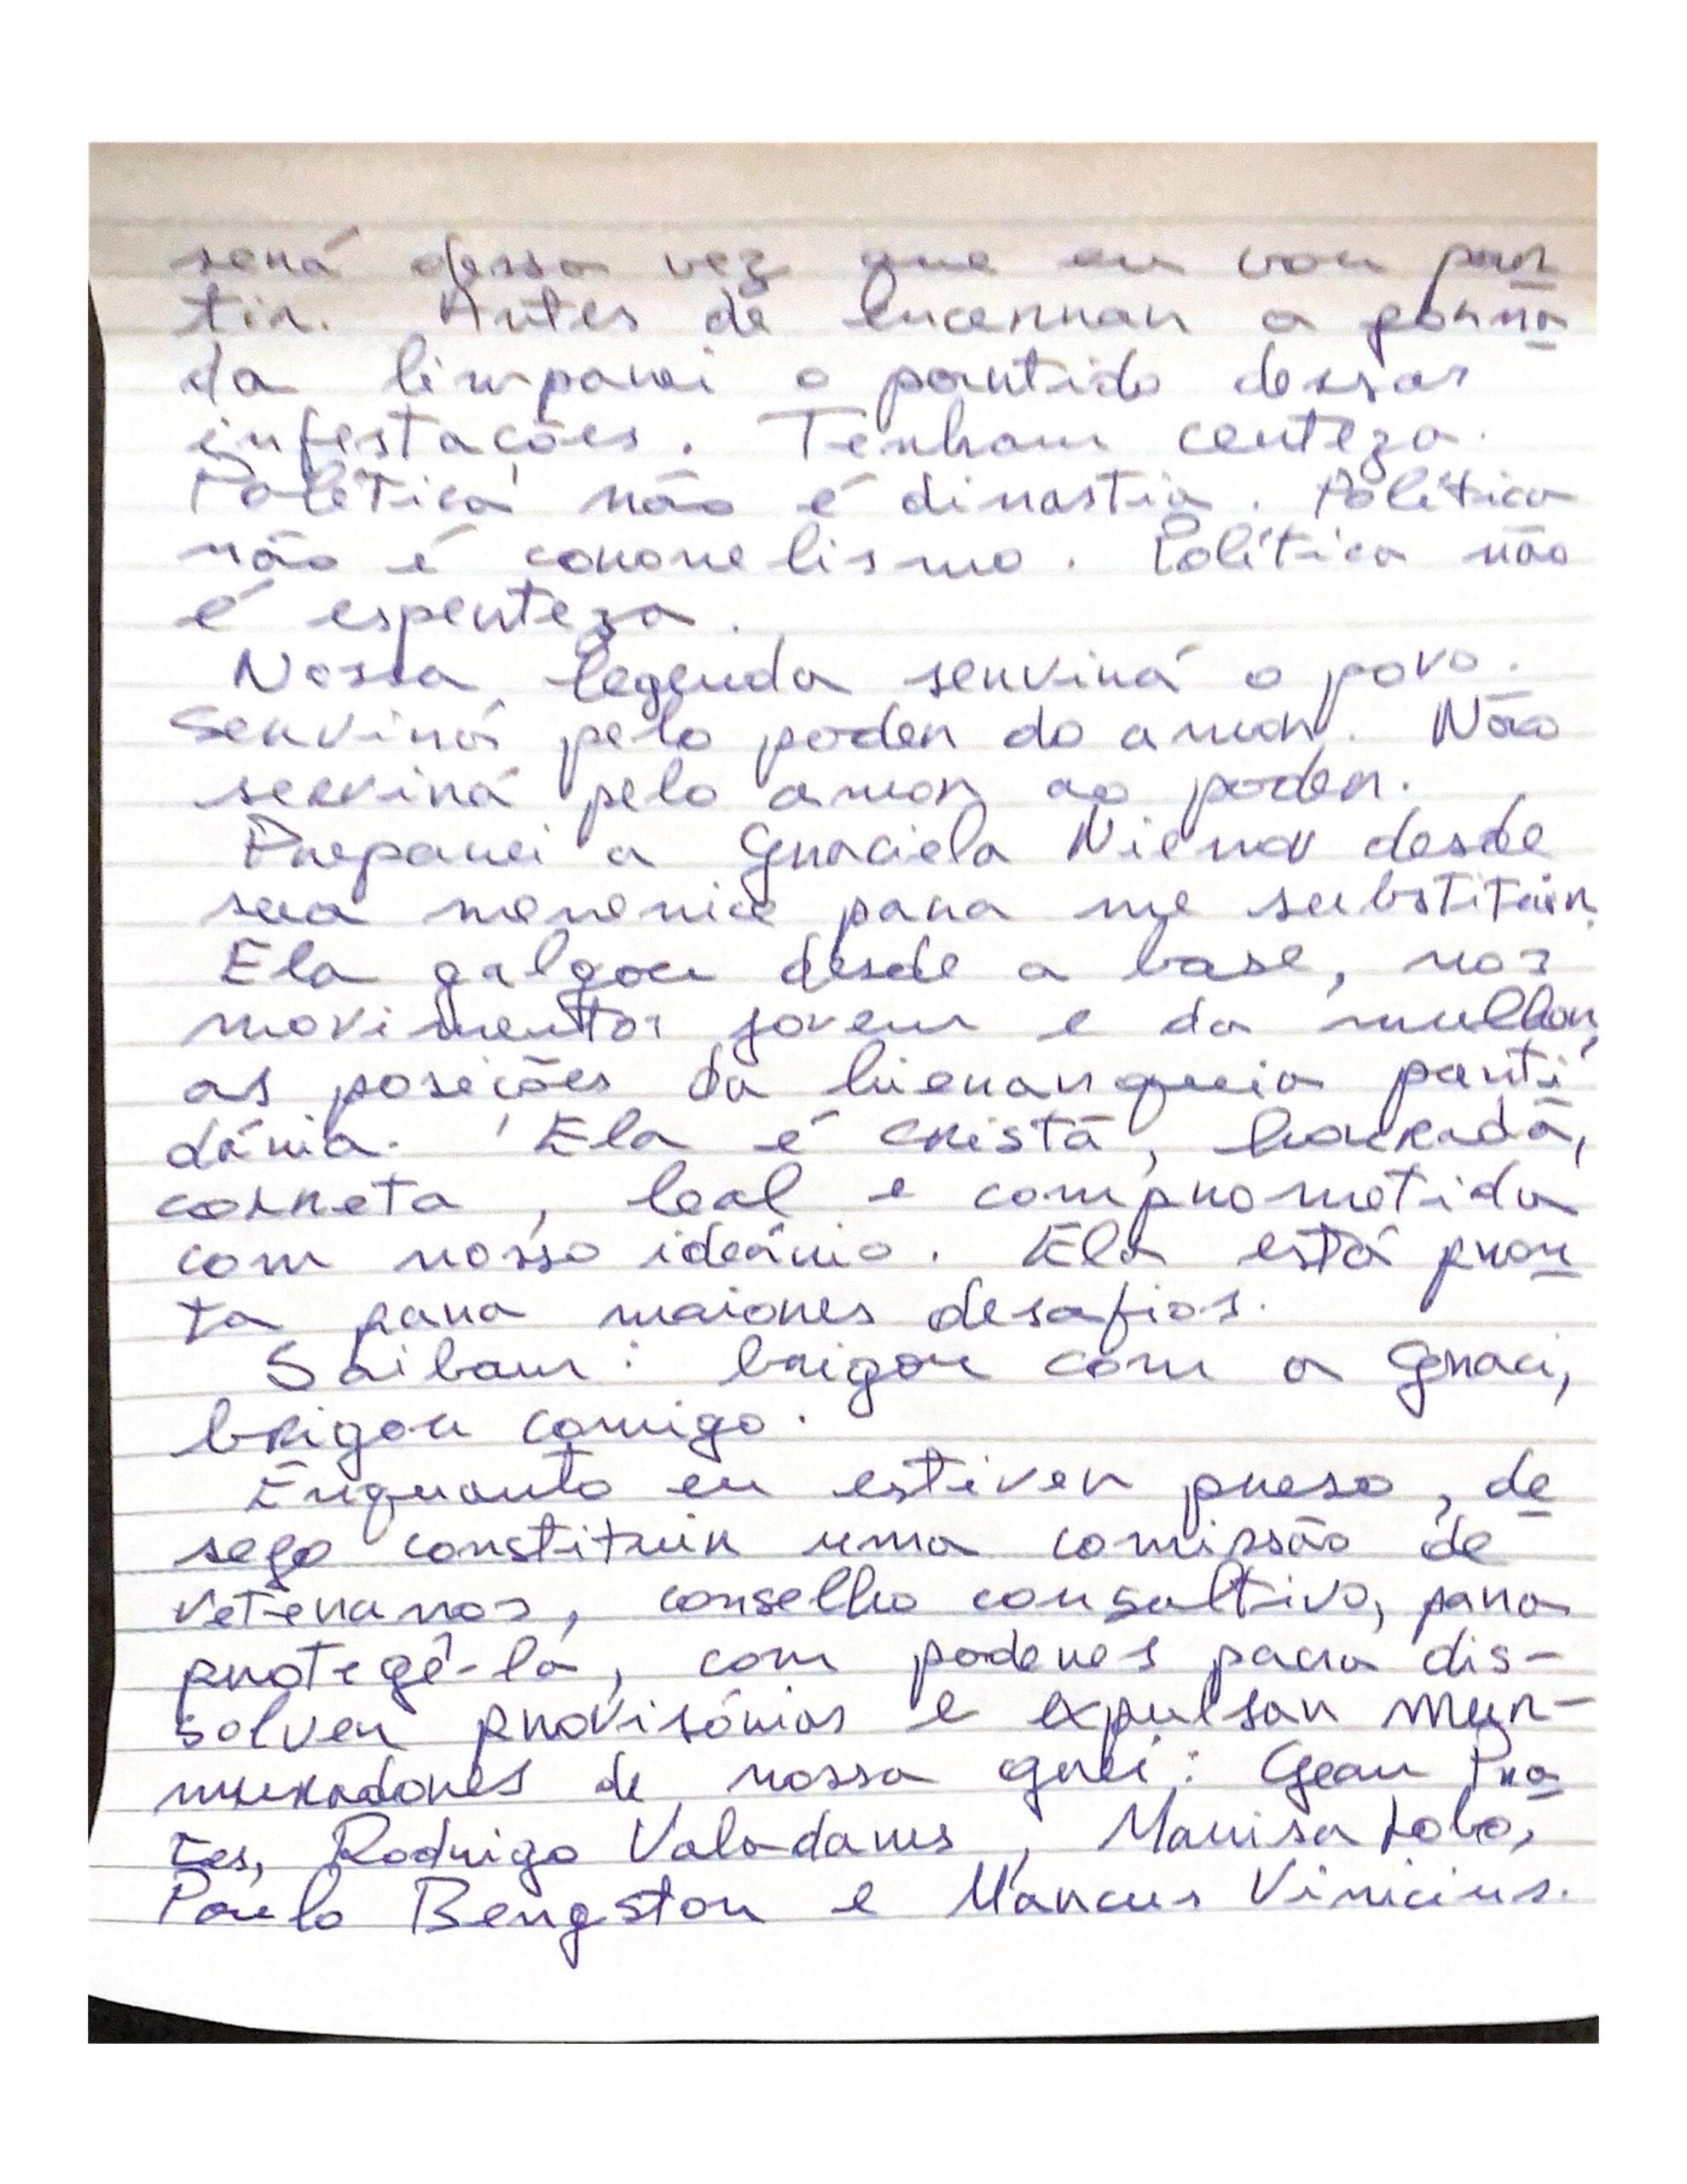 será dessa vez que eu vou par
tir. Antes de encerrar a jorna
da limparei o partido dessas
infestações. Tenham certeza.
Política não é dinastia. Política
não é coronelismo. Política não
é esperteza.
Nossa legenda servirá o povo.
Servirá pelo poder do amor. Não
servirá pelo amor ao poder.
Preparei a Graciela Nienov desde
sua meninice para me substituir.
Ela galgou desde a base, nos
movimentos jovem e da mulher,
as posições da hierarqueia parti
dária. Ela é cristã, honrada,
correta, leal e comprometida
com nosso ideário. Ela está pron
ta para maiores desafios.
Saibam: brigou com a Graci,
brigou comigo.
Enquanto eu estiver preso, de
sejo constituir uma comissão de
veteranos, conselho consultivo, para
protegê-la, com poderes para dis-
solver provisórias e expulsar mur-
muradores de nossa grei: Gean Pra
tes, Rodrigo Valadares, Marisa Lobo,
Paulo Bengston e Marcus Vinicius.